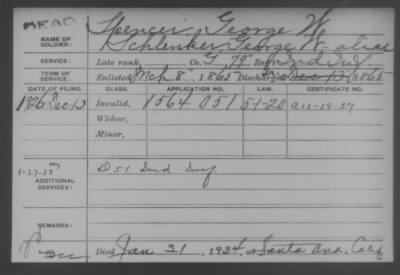 DEAD
Spencer, George W.
NAME OF SOLDIER: Schlenker, George W. alias
SERVICE: Late rank, Co. G, 79" Reg't Ind Inf.
TERM OF SERVICE: Enlisted Mch 8", 1865 Discharged 1865
DATE OF FILING. CLASS. APPLICATION NO. LAW. CERTIFICATE NO.
1926 Dec Invalid, 1564 051 51-20 a11-19-27
Widow,
Minor,
1-27-27
ADDITIONAL SERVICES: D 51 Ind Inf
REMARKS:
Died Jan 31, 1934, at Santa Ana, Calif